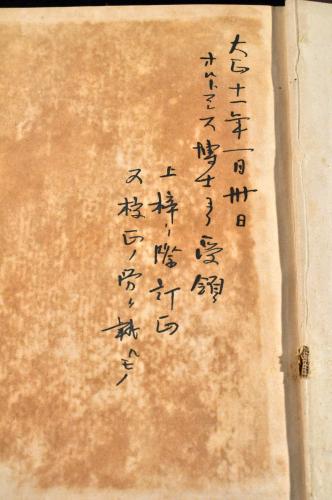 大正十一年一月卅日
オルトマンス博士ヨリ受領
上梓ノ際訂正
又校正ノ労ヲ執ルモノ